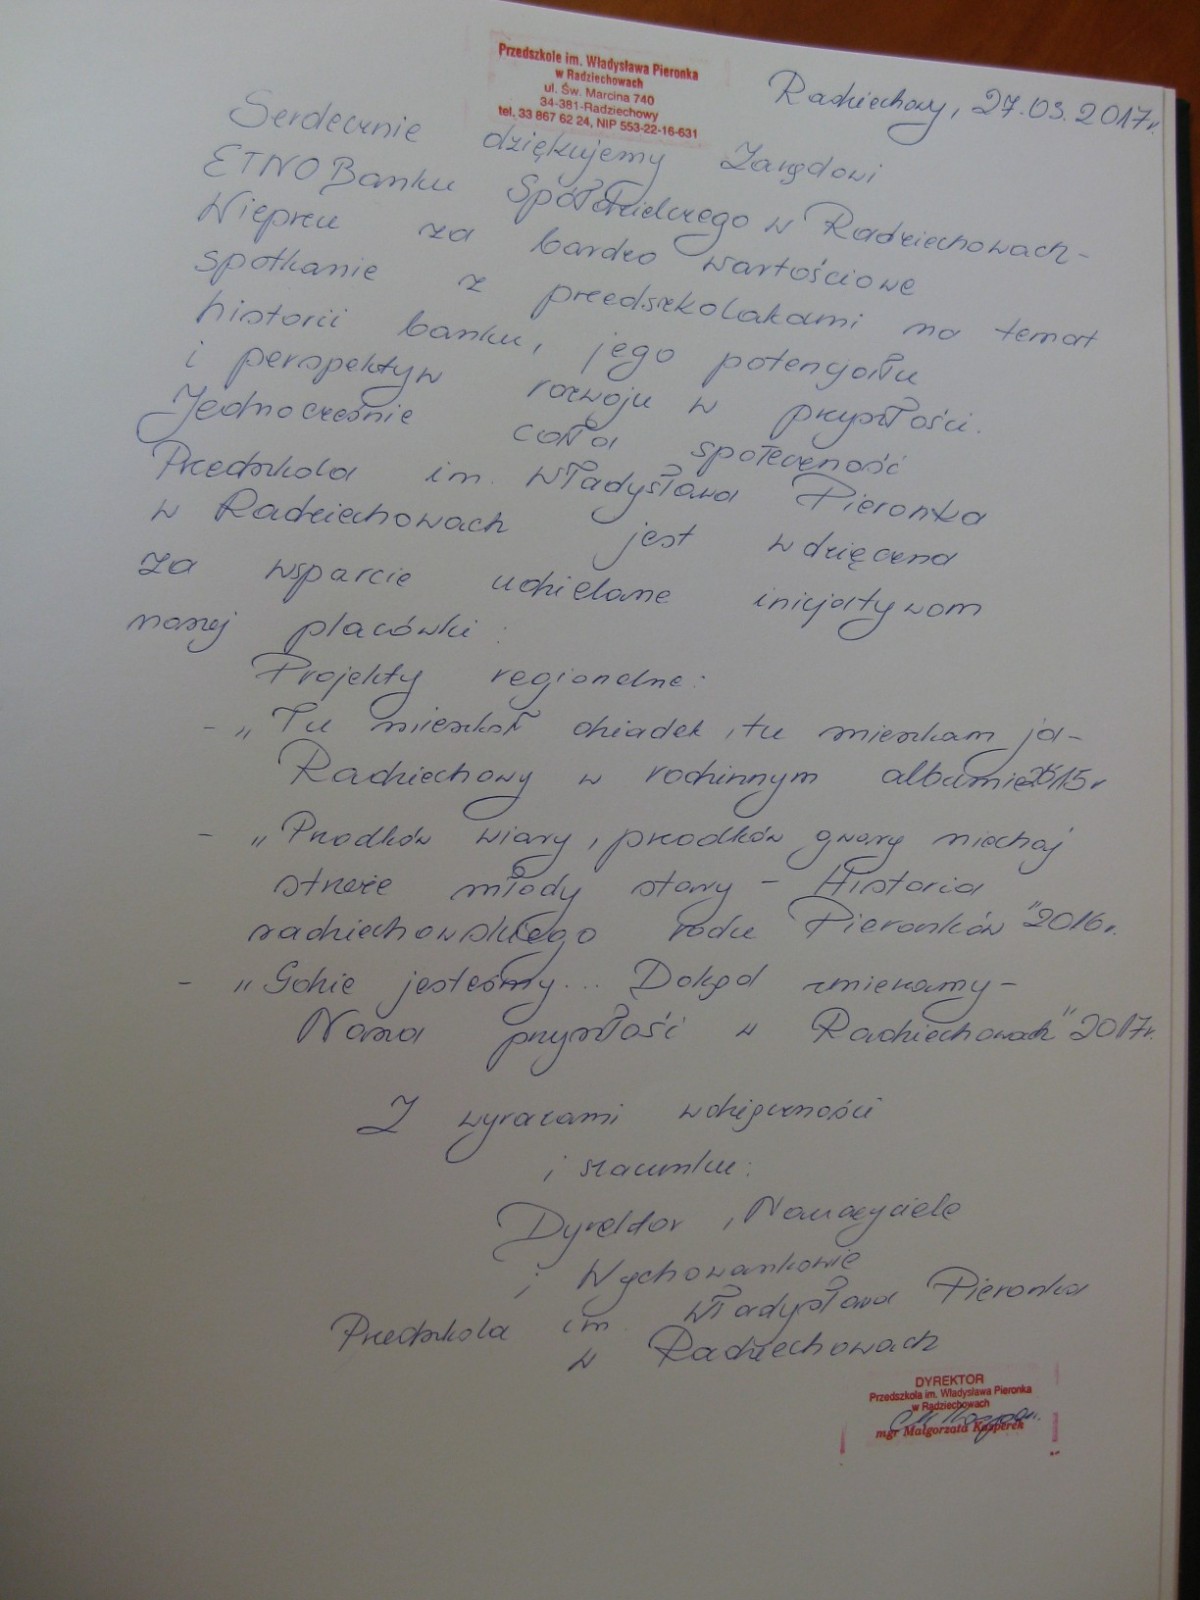 Przedszkole im. Władysława Pieronka
w Radziechowach
ul. Św. Marcina 740
34-381-Radziechowy
tel. 33 867 62 24, NIP 553-22-16-631
Radziechowy, 27.03.2017r.
Serdecznie dziękujemy Zarządowi
ETNOBanku Spółdzielczego w Radziechowach-
Wieprzu za bardzo wartościowe
spotkanie z przedszkolakami na temat
historii banku, jego potencjału
i perspektyw rozwoju w przyszłości.
Jednocześnie cała społeczność
Przedszkola im. Władysława Pieronka
w Radziechowach jest wdzięczna
za wsparcie udzielane inicjatywom
naszej placówki:
Projekty regionalne:
- „Tu mieszkał dziadek, tu mieszkam ja-
Radziechowy w rodzinnym albumie" 2015r
- „Przodków wiary, przodków gwary niechaj
strzeże młody stary - Historia
radziechowskiego rodu Pieronków" 2016r.
- „Gdzie jesteśmy... Dokąd zmierzamy-
Nasza przyszłość w Radziechowach" 2017r.
Z wyrazami wdzięczności
i szacunku:
Dyrektor, Nauczyciele
i Wychowankowie
Przedszkola im. Władysława Pieronka
w Radziechowach
DYREKTOR
Przedszkola im. Władysława Pieronka
w Radziechowach
mgr Małgorzata Kasperek